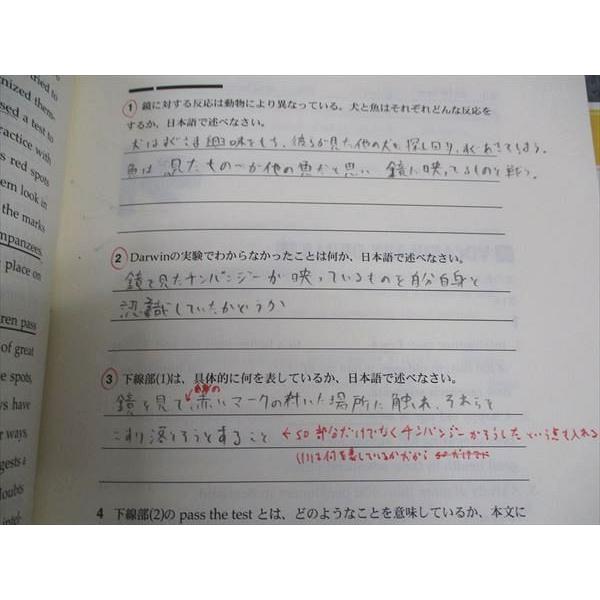 tried to
nized them-
sed a test to
ractice with
s red spots
em look in
the marks
mpanzees,
place on
ren pass
of great
e spots,
ys have
r ways.
ggests a
oubts
intel-
1 鏡に対する反応は動物により異なっている。犬と魚はそれぞれどんな反応を
するか、日本語で述べなさい。
犬はすぐさま興味をもち、彼らが見た他の犬を探し回り、永くあきてしまう。
魚は見たものが他の魚だと思い 鏡に映ってるものと戦う。
2 Darwinの実験でわからなかったことは何か、日本語で述べなさい。
鏡を見たチンパンジーが映っているものを自分自身と
認識していたかどうか
3 下線部(1)は、具体的に何を表しているか、日本語で述べなさい。
鏡を見て赤いマークの付いた場所に触れ、それらを
こすり落とそうとすること ←so部分だけでなくチンパンジーがそうしたという点を入れる
(1)は何を表しているかだから
4 下線部(2)の pass the test とは、どのようなことを意味しているか、本文に